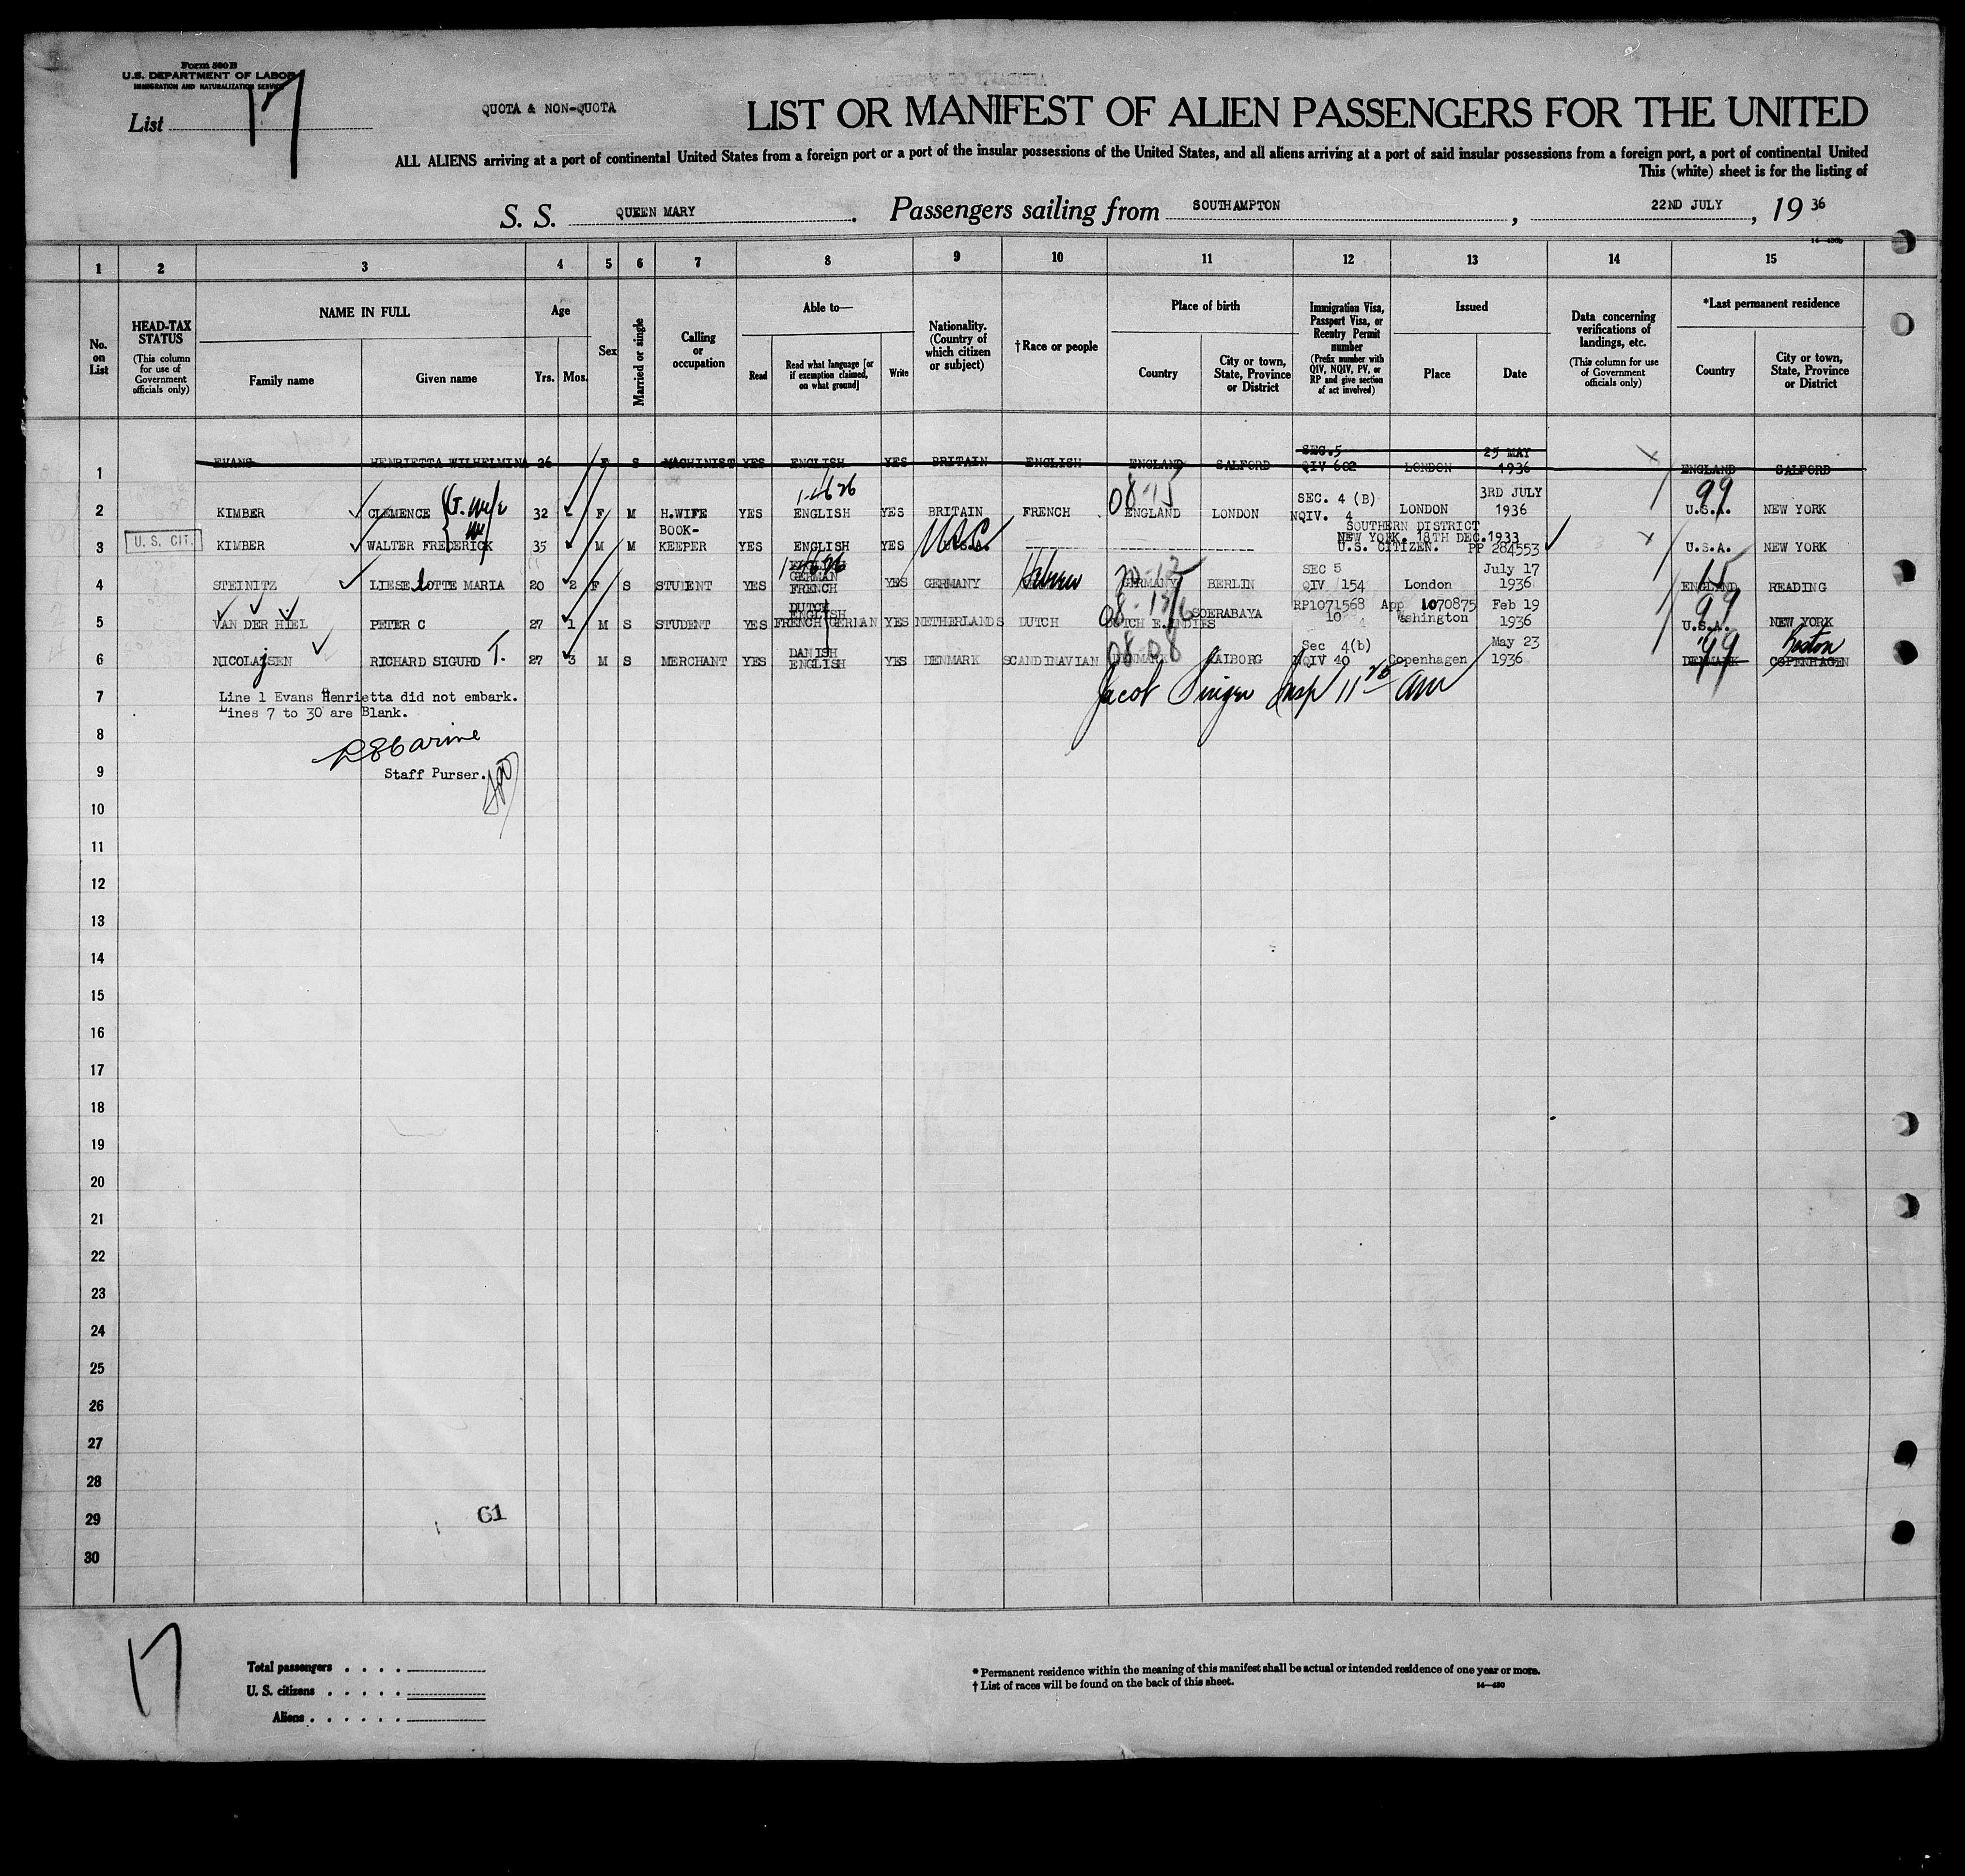 Form 500 B
U.S. DEPARTMENT OF LABOR
IMMIGRATION AND NATURALIZATION SERVICE
List 17
QUOTA & NON-QUOTA
LIST OR MANIFEST OF ALIEN PASSENGERS FOR THE UNITED
ALL ALIENS arriving at a port of continental United States from a foreign port or a port of the insular possessions of the United States, and all aliens arriving at a port of said insular possessions from a foreign port, a port of continental United
This (white) sheet is for the listing of
S. S. QUEEN MARY. Passengers sailing from SOUTHAMPTON, 22ND JULY, 19 36
1 2 3 4 5 6 7 8 9 10 11 12 13 14 15
No. on List
HEAD-TAX STATUS
(This column for use of Government officials only)
NAME IN FULL
Family name
Given name
Age
Yrs.
Mos.
Sex
Married or single
Calling or occupation
Able to—
Read
Read what language [or if exemption claimed, on what ground]
Write
Nationality. (Country of which citizen or subject)
†Race or people
Place of birth
Country
City or town, State, Province or District
Immigration Visa, Passport Visa, or Reentry Permit number
(Prefix number with QIV, NQIV, PV, or RP and give section of act involved)
Issued
Place
Date
Data concerning verifications of landings, etc.
(This column for use of Government officials only)
*Last permanent residence
Country
City or town, State, Province or District
1 EVANS HENRIETTA WILHELMINA 26 F S MACHINIST YES ENGLISH YES BRITAIN ENGLISH ENGLAND SALFORD SEC.5 QIV 602 LONDON 25 MAY 1936 ENGLAND SALFORD
2 KIMBER CLEMENCE 32 - F M H.WIFE YES ENGLISH YES BRITAIN FRENCH 08-15 ENGLAND LONDON SEC. 4 (B) NQIV. 4 LONDON 3RD JULY 1936 99 U.S.A. NEW YORK
3 U. S. CIT. KIMBER WALTER FREDERICK 35 - M M BOOK-KEEPER YES ENGLISH YES U.S.A. USC SOUTHERN DISTRICT NEW YORK. 18TH DEC.1933 U.S. CITIZEN. PP 284553 U.S.A. NEW YORK
4 STEINITZ LIESELOTTE MARIA 20 2 F S STUDENT YES ENGLISH GERMAN FRENCH YES GERMANY Hebrew GERMANY BERLIN SEC 5 QIV 154 London July 17 1936 15 ENGLAND READING
5 VAN DER HIEL PETER C 27 1 M S STUDENT YES DUTCH ENGLISH FRENCH GERMAN YES NETHERLANDS DUTCH DUTCH E.INDIES SOERABAYA RP1071568 10 App 1070875 Washington Feb 19 1936 99 U.S.A. NEW YORK
6 NICOLAJSEN RICHARD SIGURD T. 27 3 M S MERCHANT YES DANISH ENGLISH YES DENMARK SCANDINAVIAN 08-08 DENMARK AALBORG Sec 4(b) NQIV 40 Copenhagen May 23 1936 99 DENMARK COPENHAGEN Boston
7 Line 1 Evans Henrietta did not embark.
Lines 7 to 30 are Blank.
Jacob Singer Insp 11 25 am
8
9 Staff Purser.
10
11
12
13
14
15
16
17
18
19
20
21
22
23
24
25
26
27
28
29 61
30
17
Total passengers . . . .
U. S. citizens . . . . .
Aliens . . . . . .
* Permanent residence within the meaning of this manifest shall be actual or intended residence of one year or more.
† List of races will be found on the back of this sheet.
14—430